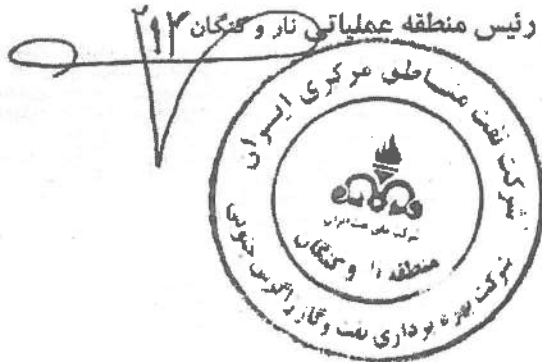 رئیس منطقه عملیاتی نار و کنگان
شرکت نفت مناطق مرکزی ایران
شرکت ملی نفت ایران
منطقه نار و کنگان
شرکت بهره برداری نفت و گاز زاگرس جنوبی